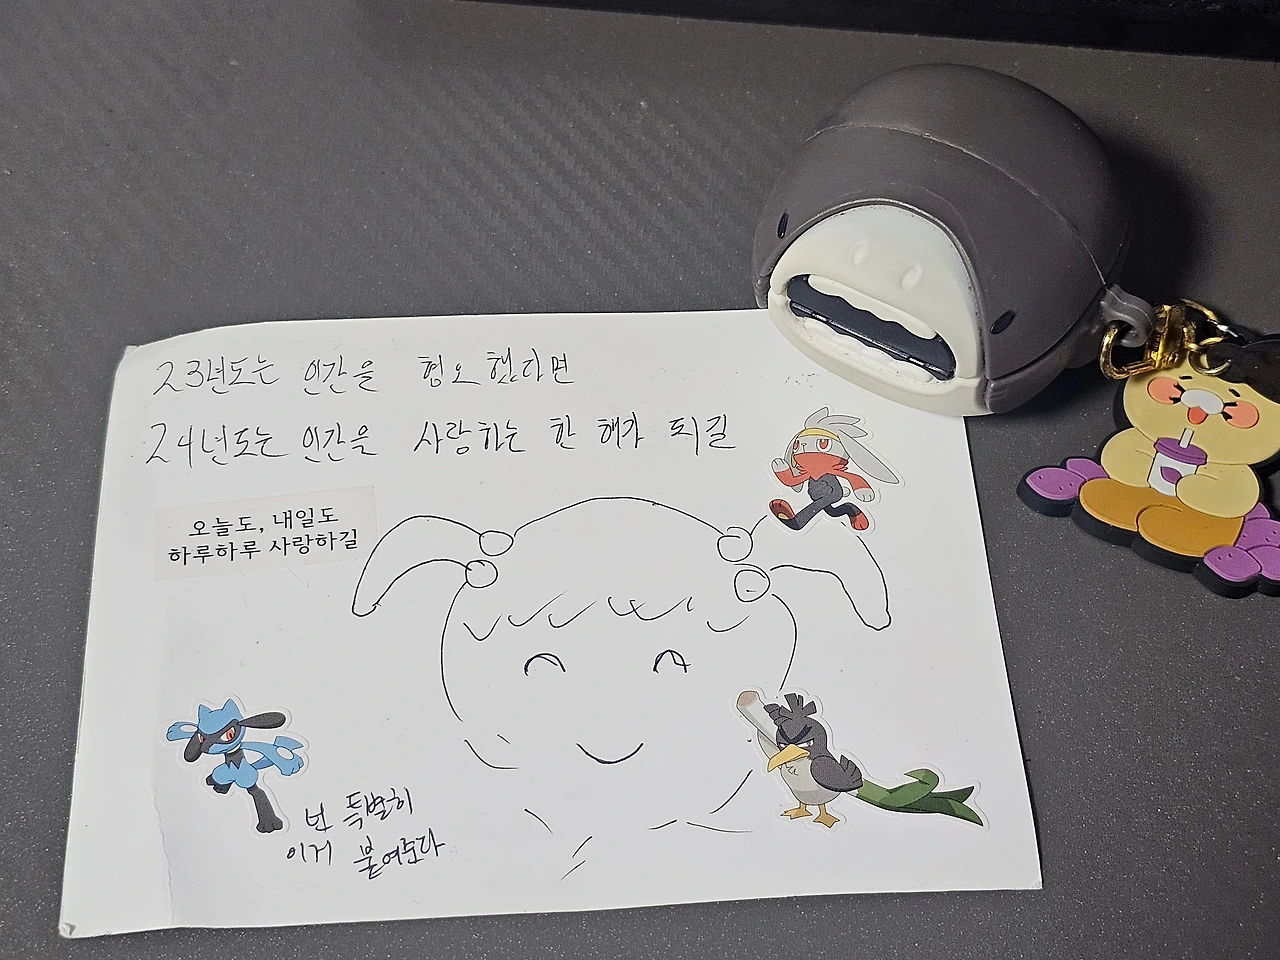 23년도는 인간을 혐오했다면
24년도는 인간을 사랑하는 한 해가 되길
오늘도, 내일도
하루하루 사랑하길
넌 특별히
이거 붙여준다